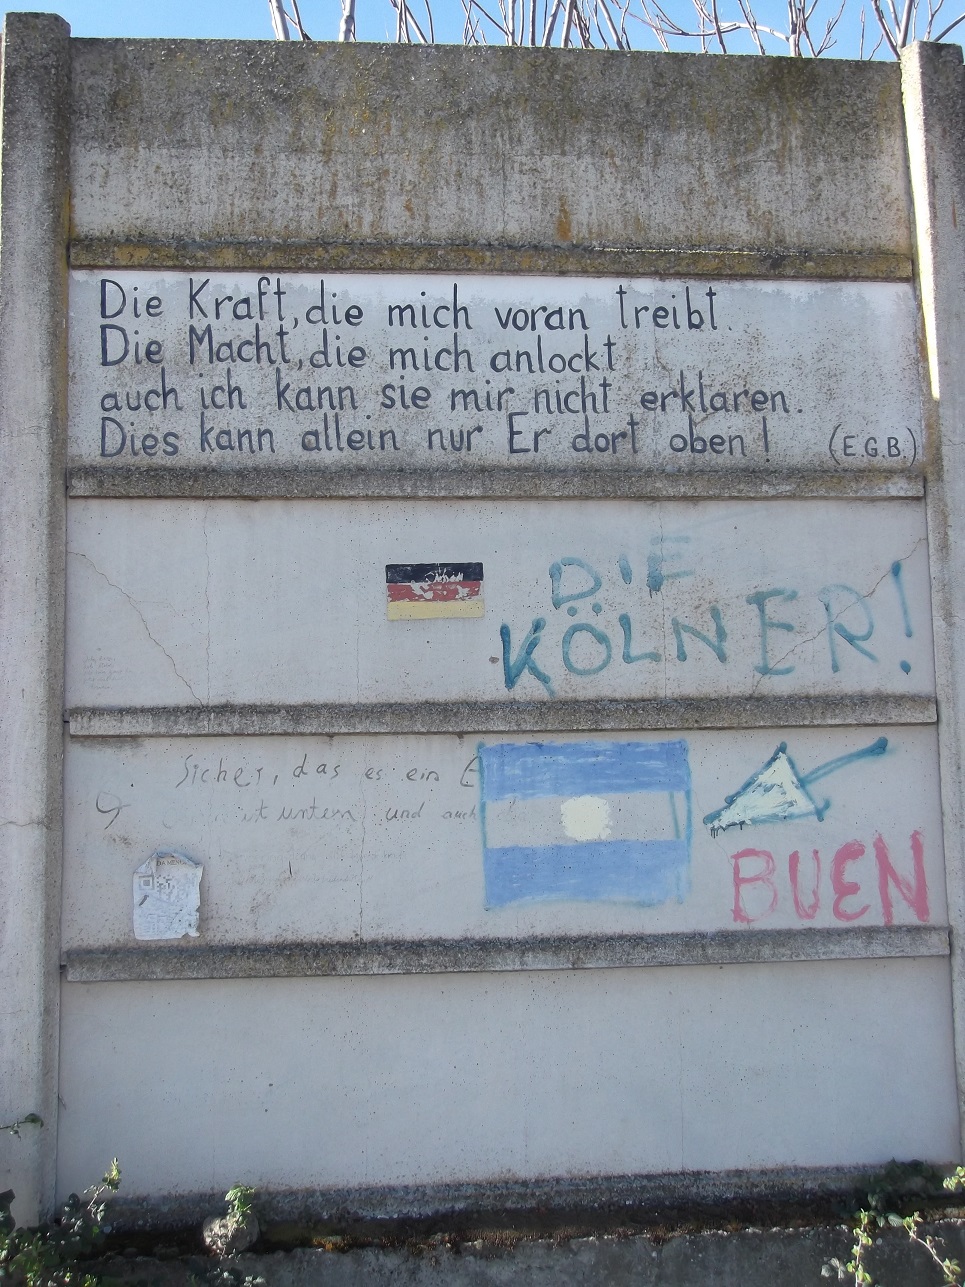 Die Kraft, die mich voran treibt.
Die Macht, die mich anlockt
auch ich kann sie mir nicht erklären.
Dies kann allein nur Er dort oben! (E.G.B.)
DIE
KÖLNER!
Sicher, das es ein E
ist untern und auch
BUEN